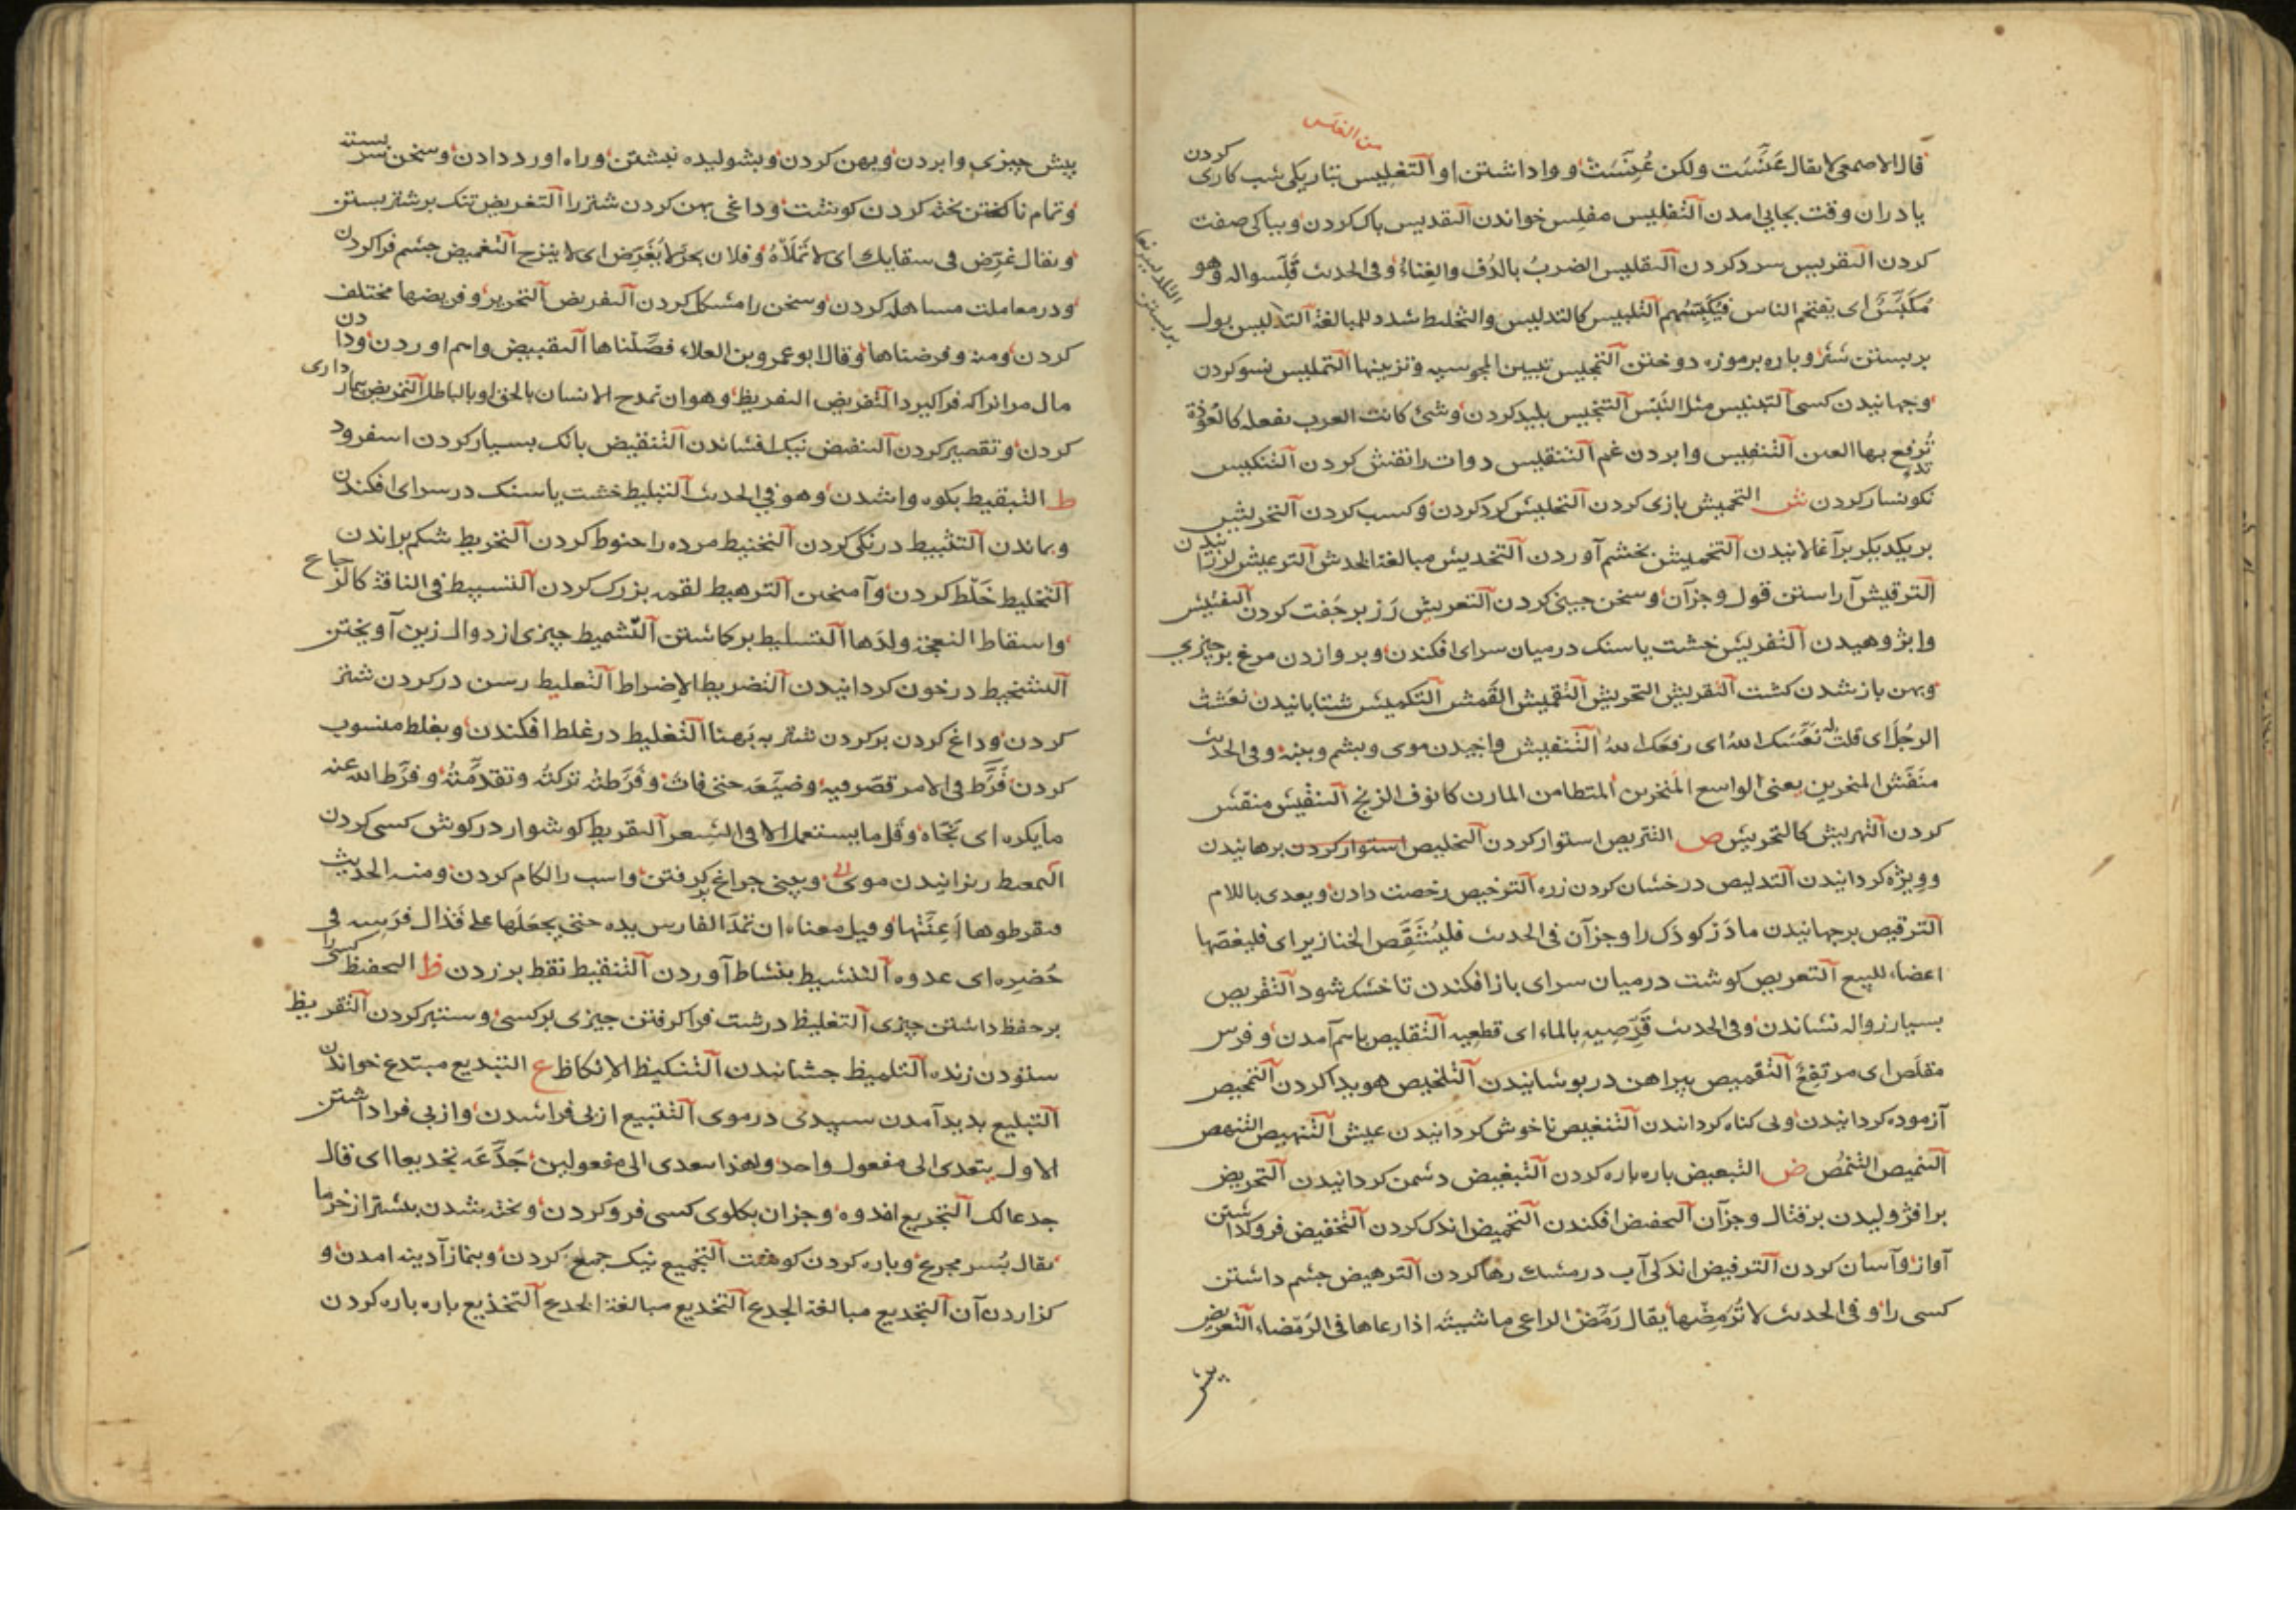 من الغلس
قال الاصمعی لا یقال عَنَّسَت ولکن عُنِّسَت و واداشتن او التغلیس بتاریکی شب کاری کردن
یا دران وقت بجایی امدن التفلیس مفلس خواندن التقدیس پاک کردن و بپاکی صفت
کردن التقریس سرد کردن التقلیس الضربُ بالدُف والغِناءُ وفی الحدیث قَلَّسوا له وهو
ای یقتحم الناس فیُکَبِّسُهم التلبیس کالتدلیس والتخلیط شدد للمبالغة التدلیس
بر بستن شتر و پاره بر موزه دوختن التمجیس تبیین المجوسیه وتزیینها التملیس نسو کردن
و جهانیدن کسی التنجیس پلید کردن وشئ کانت العرب تفعله کالعُوْذة
تُدفع بها العین التنفیس وا بردن غم التنقیس دوات را نقش کردن التنکیس
نکونسار کردن ش التحمیش بازی کردن التحلیش کرد کردن و کسب کردن التحریش
بر یکدیکر برآغالانیدن التخمیش بخشم آوردن التخدیش مبالغة الخدش الترعیش لرزانیدن
الترقیش آراستن قول و جزآن و سخن جینی کردن التعریش رَز بر جفت کردن التفتیش
وا بژوهیدن التفریش خشت یا سنک درمیان سرای افکندن و پر وازدن مرغ بر چیزی
و پهن باز شدن کشت التقریش التحریش التقمیش القَمش التکمیش شتابانیدن نعّشت
الرجُلَ ای قلت له نعَّشک اللهُ ای رفعک اللهُ التنفیش واخیدن موی و پشم و پنبه وفی الحدیث
منَفَّش المنخرین یعنی الواسع المَنخرین المتطامن المارن کانوف الزنج التنقیش منقّش
کردن التهریش کالتحریش ص التتریص استوار کردن التخلیص استوار کردن برهانیدن
و ویژه کردانیدن التدلیص درخشان کردن زره الترخیص رخصت دادن و یعدی باللام
الترقیص برجهانیدن مادَر کودَک را وجزآن فی الحدیث فلیُشَقِّص الخنازیر ای فلیعضّها
اعضاء للبیع التعریص کوشت درمیان سرای باز افکندن تا خشک شود التفریص
بسیار زواله نشاندن وفی الحدیث قَرِّصِیهِ بالماء ای قطعیه التقلیص باسم آمدن و فرس
مقلَّص ای مرتفِع التقمیص پیراهن در پوشانیدن التلخیص هویدا کردن التمحیص
آزموده کردانیدن و بی کناه کردانیدن التنغیص ناخوش کردانیدن عیش
التنمیص التنمُّص ض التبعیض پاره پاره کردن التبغیض دشمن کردانیدن التحریض
برافژولیدن بر قتال و جزآن افکندن التخفیض فروکذاشتن
آواز و آسان کردن الترفیض اندکی آب در مشک رها کردن الترمیض چشم داشتن
کسی را و فی الحدیث لا تُرَمِّضْها یقال رَمَّضَ الراعی ماشیتَه اذا رعاها فی الرَمضاء التعریض
پیش
پیش چیزی وا بردن و پهن کردن و بشولیده نبشتن و راه اورد دادن و سخن سربسته
و تمام ناکفتن پخته کردن کوشت و داغی پهن کردن شتر را التغریض تنک بر شتر بستن
ویقال غرِّض فی سقایک ای لا تَملأهُ وفلان بحرٌ لا یُغَرَّض ای لا ینزح التغمیض چشم فرا کردن
و در معاملت مساهله کردن و سخن را مشکل کردن التفریض التحزیز وفریضها مختلف
کردن ومنه وفرضناها وقال ابو عمرو بن العلاء فصّلناها التقبیض واهم اوردن و دادن
مال مر انرا که فرا کیرد التقریض التقریظ وهو ان تمدح الانسان بالحق او بالباطل التمریض بیمار داری
کردن و تقصیر کردن التنفیض نیک افشاندن التنقیض بانک بسیار کردن اسفرود
ط التبقیط بکوه واشدن وهو فی الحدیث التبلیط خشت یا سنک در سرای افکندن
و بماندن التثبیط درنکی کردن التحنیط مرده را حنوط کردن التخریط شکم براندن
التخلیط خَلْط کردن و آمیختن الترهیط لقمه بزرک کردن التسبیط فی الناقة کالزجاع
واسقاط النعجة ولدَها التسلیط برکاشتن التشمیط چیزی از دوال زین آویختن
التشحیط در خون کردانیدن التضریط الإضراط التعلیط رسن در کردن شتر
کردن و داغ کردن بر کردن شتر به پَهنا التغلیط در غلط افکندن و بغلط منسوب
کردن فَرَّط فی الامر قصَّر فیه وضیَّعَه حتی فات وفَرَّطتُه ترکتُه وتقدَّمتُهُ وفرَّط الله عنه
ما یکره ای نَحّاه وقَل ما یستعمل الا فی الشِعر التقریط کوشوار در کوش کسی کردن
التمعیط ریزانیدن موی و بینی چراغ بر کرفتن و اسب را لکام کردن ومنه الحدیث
فقرطوها اَعِنَّتها وقیل معناه ان تمدّ الفارس یده حتی یجعلها علی قذال فرَسِه فی
حُضْرِه ای عدوه التنشیط بنشاط آوردن التنقیط نقط بر زدن ظ التحفیظ کسی را
بر حفظ داشتن چیزی التغلیظ درشت فرا کرفتن چیزی بر کسی و ستبر کردن التقریظ
ستودن زنده التلمیظ چشانیدن التنکیظ الإنکاظ ع التبدیع مبتدع خواندن
التبلیع پدید آمدن سپیدی در موی التتبیع از پی فرا شدن و از پی فرا داشتن
الاول یتعدی الی مفعول واحد وهذا یتعدی الی مفعولین جَدَّعَه تجدیعا ای قال
جدعا لک التجریع اندوه و جزان بکلوی کسی فرو کردن و پخته شدن بیشتر از خرما
یقال بُسر مجرع و پاره کردن کوشت التجمیع نیک جمع کردن و بنماز آدینه امدن و
کزاردن آن التجدیع مبالغة الجدع التخدیع مبالغة الخدع التخذیع پاره پاره کردن